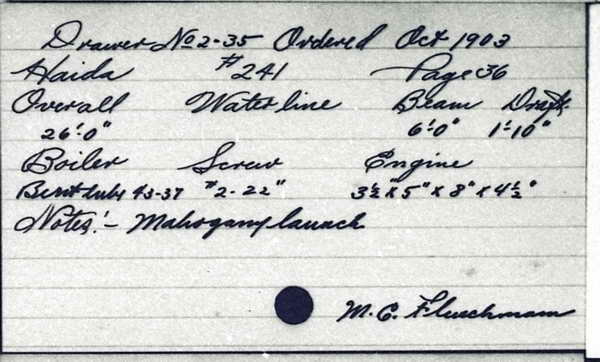 Drawer No 2-35 Ordered Oct 1903
Haida #241 Page 36
Overall Waterline Beam Draft
26'-0" 6'-0" 1'-10"
Boiler Screw Engine
Bent tube 43-37 #2-22" 3½"x5"x8"x4½"
Notes:- Mahogany launch
M. C. Fleischmann